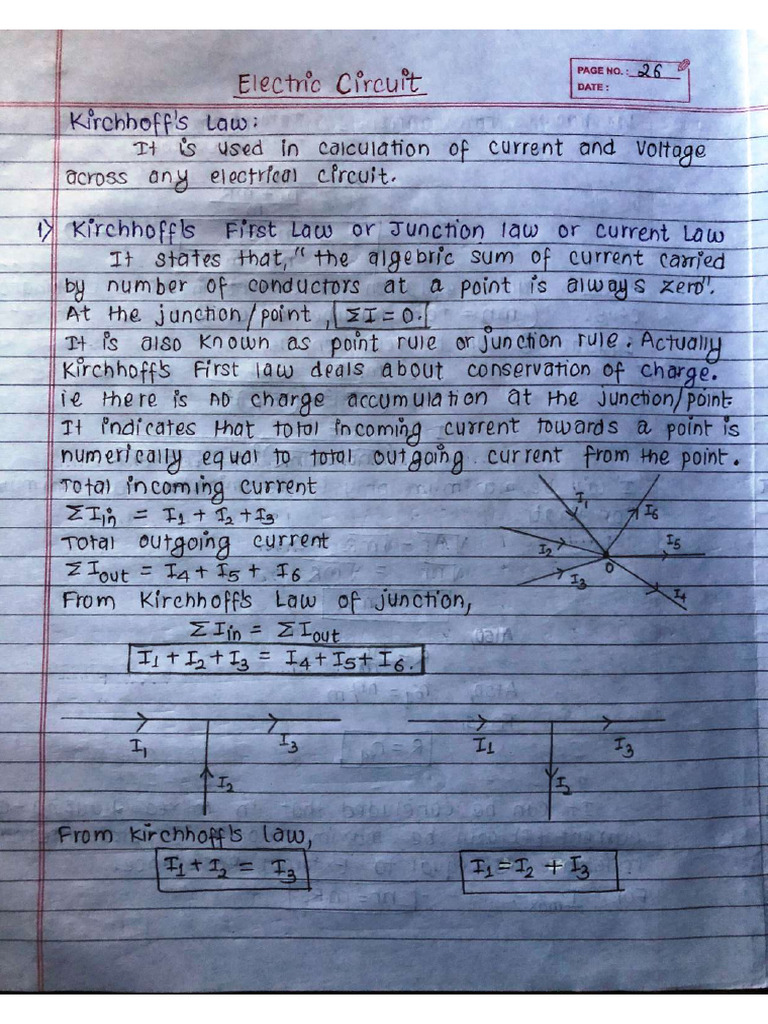 Electric Circuit
PAGE NO.: 26
DATE:
Kirchhoff's Law:
It is used in calculation of current and voltage
across any electrical circuit.
1) Kirchhoff's First Law or Junction law or Current Law
It states that, "the algebric sum of current carried
by number of conductors at a point is always zero".
At the junction/point, ΣI = 0.
It is also known as point rule or junction rule. Actually
Kirchhoff's First law deals about conservation of charge.
ie there is no charge accumulation at the junction/point
It indicates that total incoming current towards a point is
numerically equal to total outgoing current from the point.
Total incoming current
ΣIin = I1 + I2 + I3
Total outgoing current
ΣIout = I4 + I5 + I6
I1
I6
I2
I5
O
I3
I4
From Kirchhoff's Law of junction,
ΣIin = ΣIout
I1 + I2 + I3 = I4 + I5 + I6.
I1 I3 I1 I3
I2 I2
From Kirchhoff's law,
I1 + I2 = I3 I1 = I2 + I3